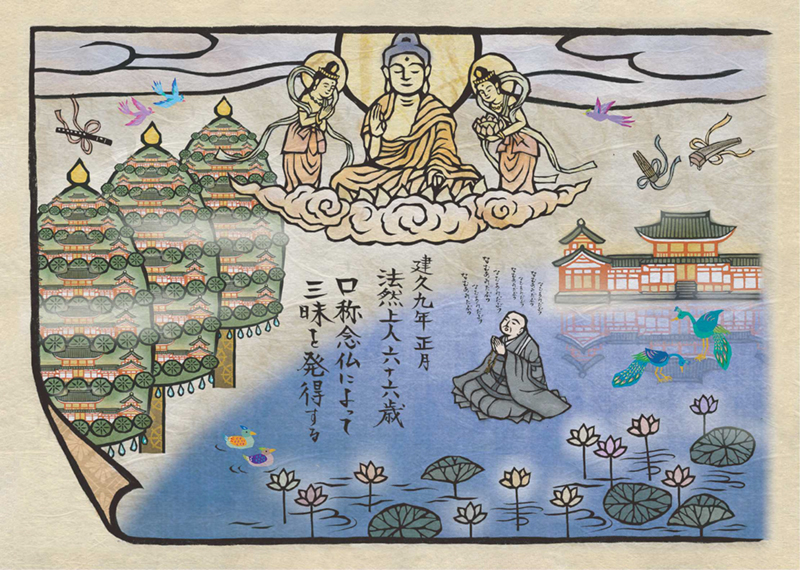 なむあみだぶつ
なむあみだぶつ
なむあみだぶつ
なむあみだぶつ
なむあみだぶつ
なむあみだぶつ
なむあみだぶつ
なむあみだぶつ
建久九年 正月
法然上人六十六歳
口称念仏によって
三昧を発得する